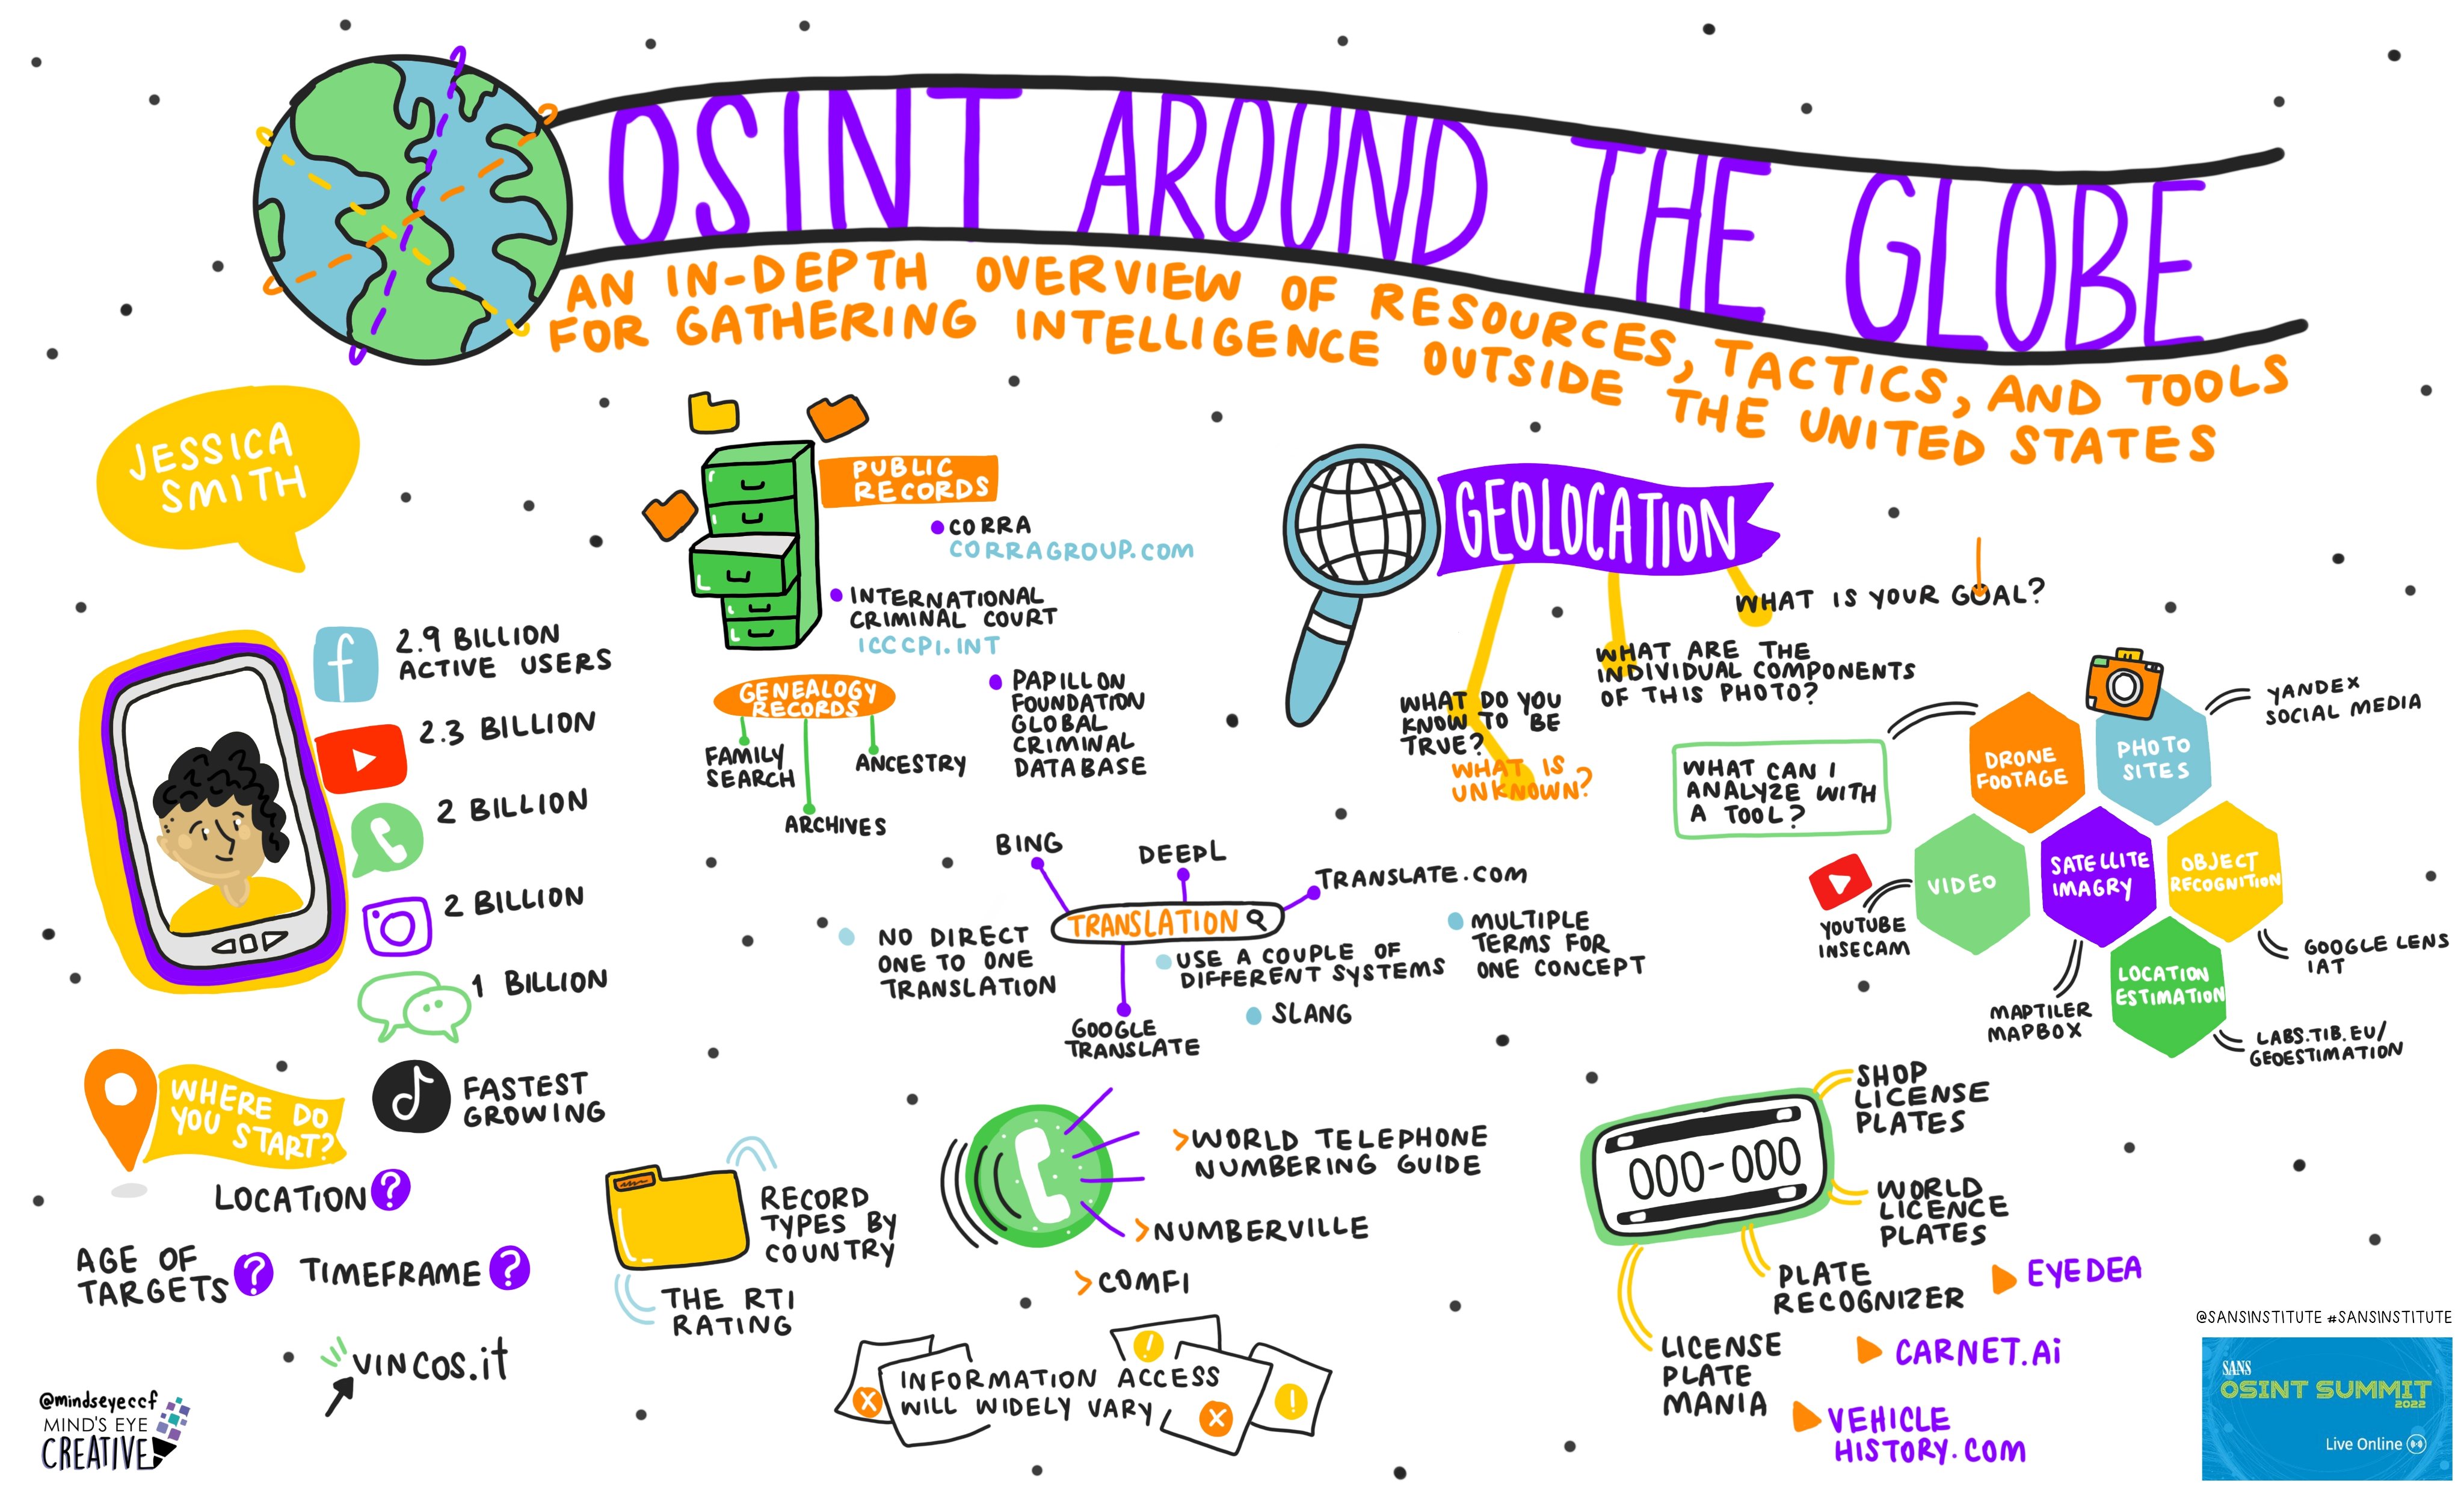 OSINT AROUND THE GLOBE
AN IN-DEPTH OVERVIEW OF RESOURCES, TACTICS, AND TOOLS
FOR GATHERING INTELLIGENCE OUTSIDE THE UNITED STATES
JESSICA
SMITH
f
2.9 BILLION
ACTIVE USERS
2.3 BILLION
2 BILLION
2 BILLION
1 BILLION
FASTEST
GROWING
WHERE DO
YOU START?
LOCATION ?
AGE OF
TARGETS ?
TIMEFRAME ?
VINCOS.it
@mindseyeccf
MIND'S EYE
CREATIVE
PUBLIC
RECORDS
CORRA
CORRAGROUP.COM
INTERNATIONAL
CRIMINAL COURT
ICCCPI.INT
PAPILLON
FOUNDATION
GLOBAL
CRIMINAL
DATABASE
GENEALOGY
RECORDS
FAMILY
SEARCH
ARCHIVES
ANCESTRY
BING
DEEPL
TRANSLATE.COM
TRANSLATION
GOOGLE
TRANSLATE
NO DIRECT
ONE TO ONE
TRANSLATION
USE A COUPLE OF
DIFFERENT SYSTEMS
SLANG
MULTIPLE
TERMS FOR
ONE CONCEPT
RECORD
TYPES BY
COUNTRY
THE RTI
RATING
>WORLD TELEPHONE
NUMBERING GUIDE
>NUMBERVILLE
>COMFI
INFORMATION ACCESS
WILL WIDELY VARY
X
!
X
!
GEOLOCATION
WHAT IS YOUR GOAL?
WHAT ARE THE
INDIVIDUAL COMPONENTS
OF THIS PHOTO?
WHAT DO YOU
KNOW TO BE
TRUE?
WHAT IS
UNKNOWN?
WHAT CAN I
ANALYZE WITH
A TOOL?
DRONE
FOOTAGE
PHOTO
SITES
YANDEX
SOCIAL MEDIA
VIDEO
YOUTUBE
INSECAM
SATELLITE
IMAGRY
MAPTILER
MAPBOX
OBJECT
RECOGNITION
GOOGLE LENS
IAT
LOCATION
ESTIMATION
LABS.TIB.EU/
GEOESTIMATION
000-000
SHOP
LICENSE
PLATES
WORLD
LICENCE
PLATES
PLATE
RECOGNIZER
LICENSE
PLATE
MANIA
EYEDEA
CARNET.Ai
VEHICLE
HISTORY.COM
@SANSINSTITUTE #SANSINSTITUTE
SANS
OSINT SUMMIT
2022
Live Online